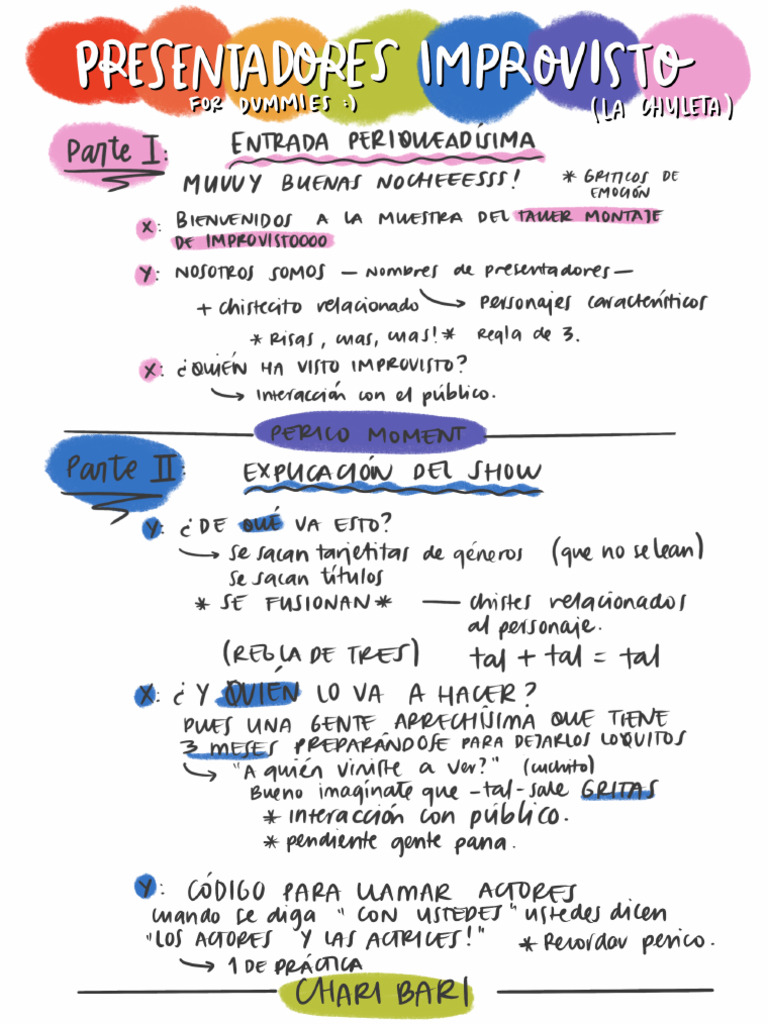 PRESENTADORES IMPROVISTO
FOR DUMMIES :)
(LA CHULETA)
Parte I:
ENTRADA PERIQUEADÍSIMA
MUUUY BUENAS NOCHEEESSS! * GRITICOS DE EMOCIÓN
X: BIENVENIDOS A LA MUESTRA DEL TALLER MONTAJE
DE IMPROVISTOOOO
Y: NOSOTROS SOMOS — Nombres de presentadores —
+ chistecito relacionado → Personajes característicos
* Risas, mas, mas! * Regla de 3.
X: ¿QUIÉN HA VISTO IMPROVISTO?
→ Interacción con el público.
PERICO MOMENT
Parte II:
EXPLICACIÓN DEL SHOW
Y: ¿DE QUÉ VA ESTO?
→ se sacan tarjetitas de géneros (que no se lean)
se sacan títulos
* SE FUSIONAN * — chistes relacionados
al personaje.
(REGLA DE TRES) tal + tal = tal
X: ¿Y QUIÉN LO VA A HACER?
PUES UNA GENTE ARRECHÍSIMA QUE TIENE
3 MESES PREPARÁNDOSE PARA DEJARLOS LOQUITOS
→ "A quién viniste a ver?" (cuchito)
Bueno imagínate que -tal- sale GRITAS
* Interacción con público.
* pendiente gente pana.
Y: CÓDIGO PARA LLAMAR ACTORES
cuando se diga "CON USTEDES" ustedes dicen
"LOS ACTORES Y LAS ACTRICES!" * Recordar perico.
→ 1 DE PRÁCTICA
CHARI BARI